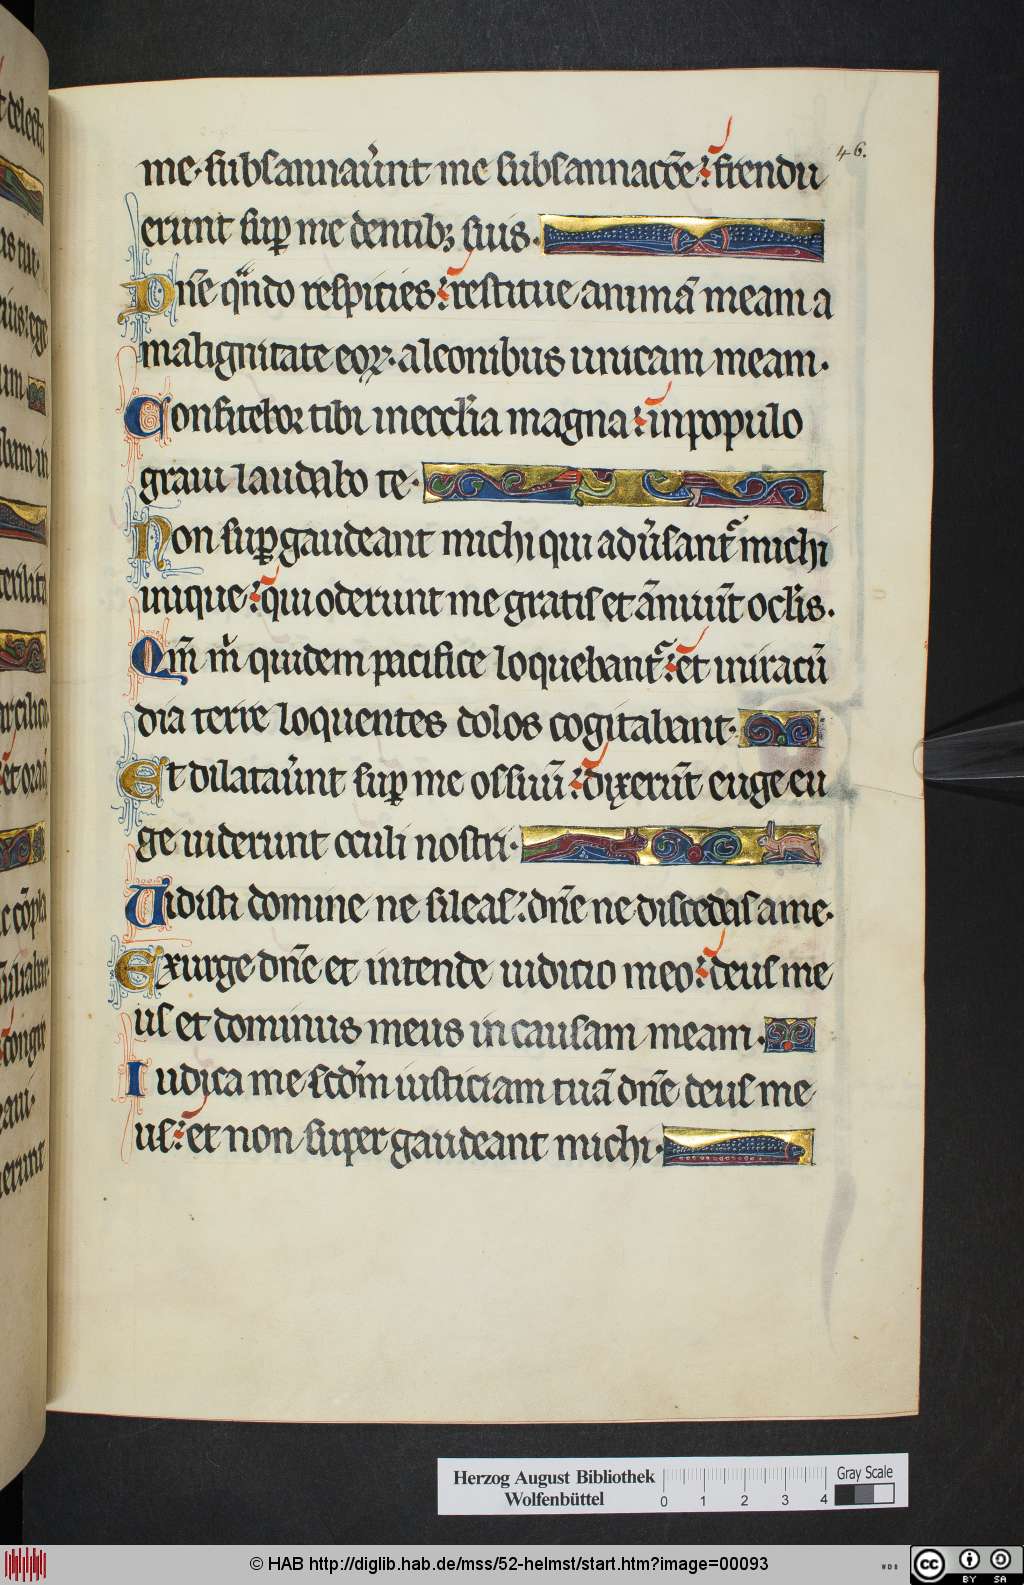 46.
me. subsannaũnt me subsannacõe: frendu
erunt suꝑ me dentibꝫ suis.
Dñe qñdo respicies: restitue animã meam a
malignitate eoꝝ. aleonibus unicam meam.
Confitebor tibi inecclĩa magna: inpopulo
graui laudabo te.
Non suꝑgaudeant michi qui adũsant᷑ michi
inique: qui oderunt me gratis et ãnuũt oclĩs.
Qm̃ m̃ quidem pacifice loquebant᷑: et iniracũ
dia terre loquentes dolos cogitabant.
Et dilataũnt suꝑ me os suũ: dixerũt euge eu
ge uiderunt oculi nostri.
Uidisti domine ne sileas: dñe ne discedas ame.
Exurge dñe et intende iudicio meo: deus me
us et dominus meus in causam meam.
Iudica me scdm̃ iusticiam tuã dñe deus me
us: et non super gaudeant michi.
Herzog August Bibliothek
Wolfenbüttel
0 1 2 3 4
Gray Scale
© HAB http://diglib.hab.de/mss/52-helmst/start.htm?image=00093
CC BY SA